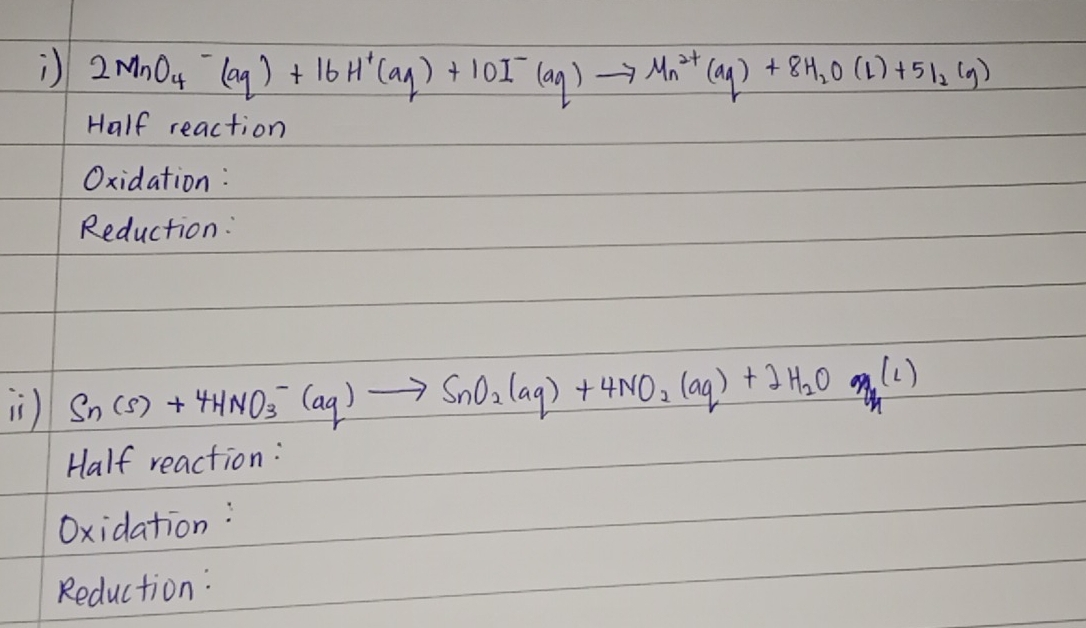 i) 2MnO₄⁻ (aq) + 16H⁺(aq) + 10I⁻ (aq) → Mn²⁺ (aq) + 8H₂O (l) + 5I₂ (g)
Half reaction
Oxidation :
Reduction :
ii) Sn (s) + 4HNO₃⁻ (aq) → SnO₂ (aq) + 4NO₂ (aq) + 2H₂O (l)
Half reaction :
Oxidation :
Reduction :